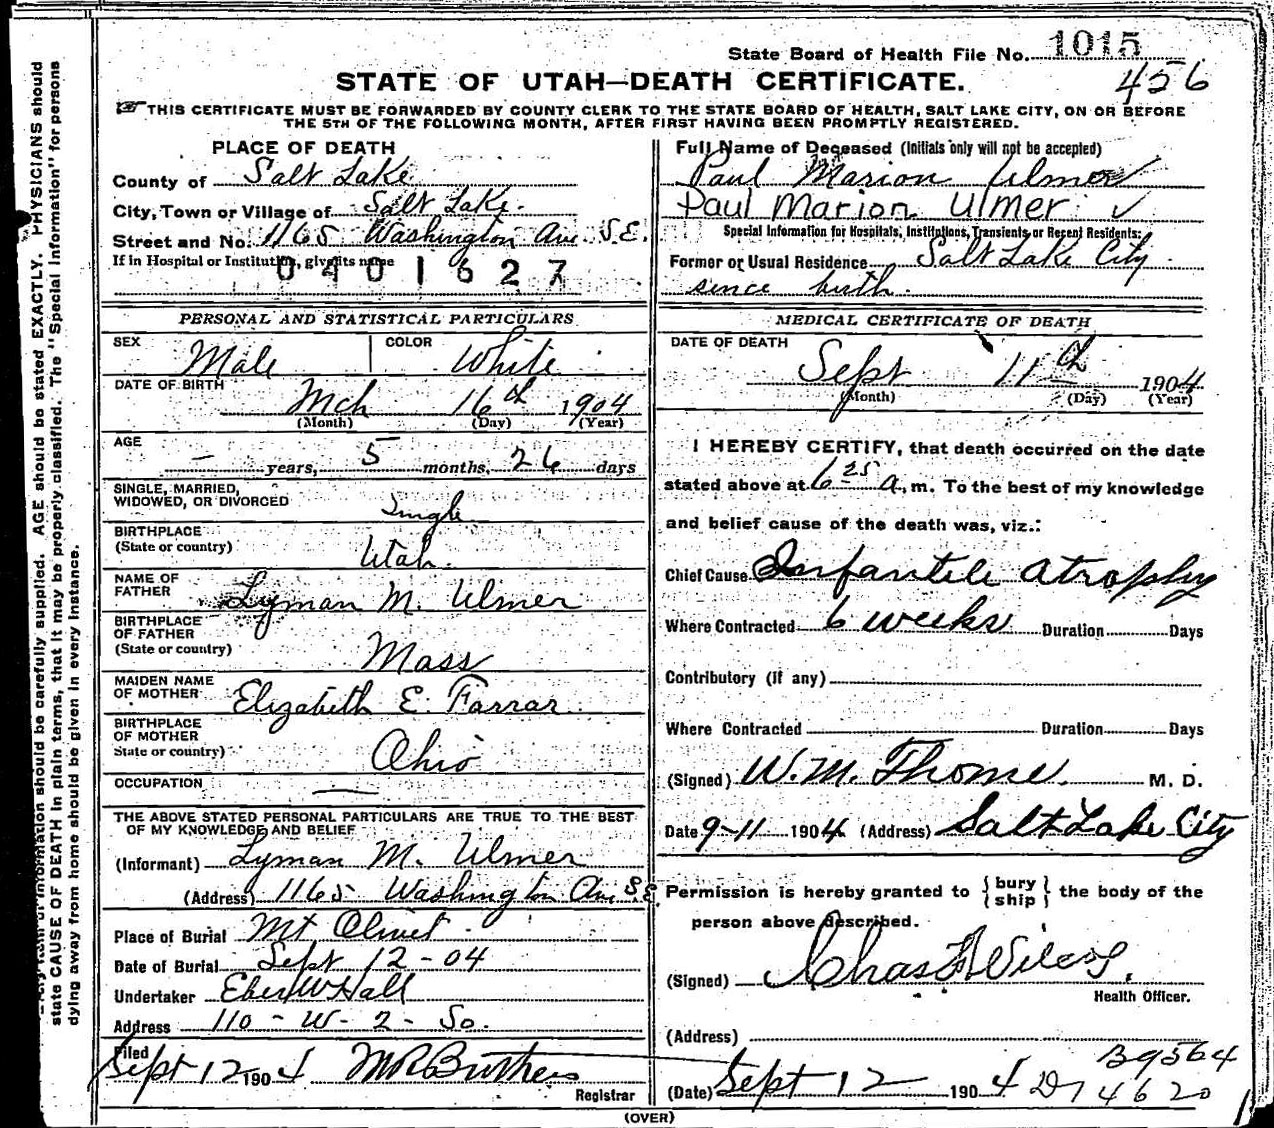 State Board of Health File No. 1015
456
STATE OF UTAH—DEATH CERTIFICATE.
THIS CERTIFICATE MUST BE FORWARDED BY COUNTY CLERK TO THE STATE BOARD OF HEALTH, SALT LAKE CITY, ON OR BEFORE
THE 5TH OF THE FOLLOWING MONTH, AFTER FIRST HAVING BEEN PROMPTLY REGISTERED.
PLACE OF DEATH
County of Salt Lake
City, Town or Village of Salt Lake.
Street and No. 1165 Washington Ave. S.E.
If in Hospital or Institution, give its name
0401627
Full Name of Deceased (Initials only will not be accepted)
Paul Marion Ulmer
Paul Marion Ulmer ✓
Special Information for Hospitals, Institutions, Transients or Recent Residents:
Former or Usual Residence Salt Lake City
since birth.
PERSONAL AND STATISTICAL PARTICULARS
SEX Male COLOR White
DATE OF BIRTH
Mch 16th 1904
(Month) (Day) (Year)
AGE
— years, 5 months, 26 days
SINGLE, MARRIED,
WIDOWED, OR DIVORCED Single
BIRTHPLACE
(State or country) Utah.
NAME OF
FATHER Lyman M. Ulmer
BIRTHPLACE
OF FATHER
(State or country) Mass
MAIDEN NAME
OF MOTHER Elizabeth E. Farrar
BIRTHPLACE
OF MOTHER
State or country) Ohio
OCCUPATION —
THE ABOVE STATED PERSONAL PARTICULARS ARE TRUE TO THE BEST
OF MY KNOWLEDGE AND BELIEF
(Informant) Lyman M. Ulmer
(Address) 1165 Washington Ave S.E.
Place of Burial Mt Olivet.
Date of Burial Sept 12-04
Undertaker Eber W Hall
Address 110 - W - 2 - So.
Filed
Sept 12 1904
Registrar
MEDICAL CERTIFICATE OF DEATH
DATE OF DEATH
Sept 11th 1904
(Month) (Day) (Year)
I HEREBY CERTIFY, that death occurred on the date
stated above at 6 25 a, m. To the best of my knowledge
and belief cause of the death was, viz.:
Chief Cause Infantile Atrophy
Where Contracted 6 weeks Duration Days
Contributory (if any)
Where Contracted Duration Days
(Signed) W. M. Thome. M. D.
Date 9-11 1904 (Address) Salt Lake City
Permission is hereby granted to {bury
ship} the body of the
person above described.
(Signed) Chas
Health Officer.
(Address)
B9564
(Date) Sept 12 1904 D74620
(OVER)
information should be carefully supplied. AGE should be stated EXACTLY. PHYSICIANS should
state CAUSE OF DEATH in plain terms, that it may be properly classified. The "Special Information" for persons
dying away from home should be given in every instance.